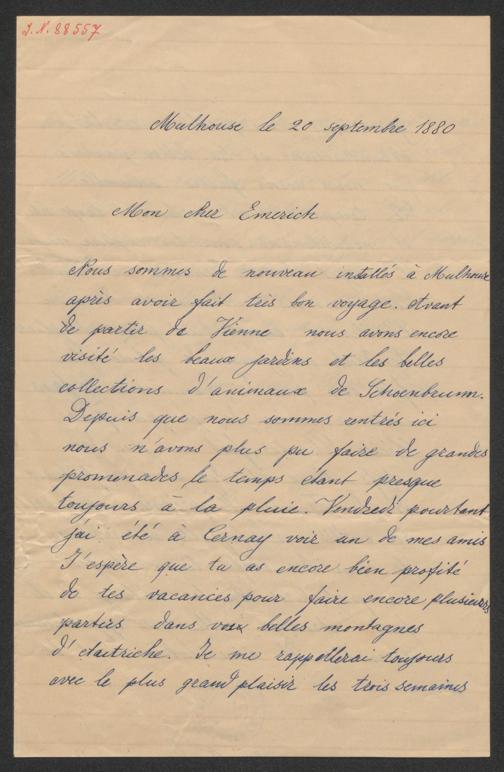 J.N. 88557
Mulhouse le 20 septembre 1880
Mon cher Emerich
Nous sommes de nouveau intallés à Mulhouse
après avoir fait très bon voyage. Avant
de partir de Vienne nous avons encore
visité les beaux jardins et les belles
collections d'animaux de Schoenbrunn.
Depuis que nous sommes rentrés ici
nous n'avons plus pu faire de grandes
promenades le temps étant presque
toujours à la pluie. Vendredi pourtant
j'ai été à Cernay voir un de mes amis
J'espère que tu as encore bien profité
de tes vacances pour faire encore plusieurs
parties dans vos belles montagnes
d'Autriche. Je me rappellerai toujours
avec le plus grand plaisir les trois semaines